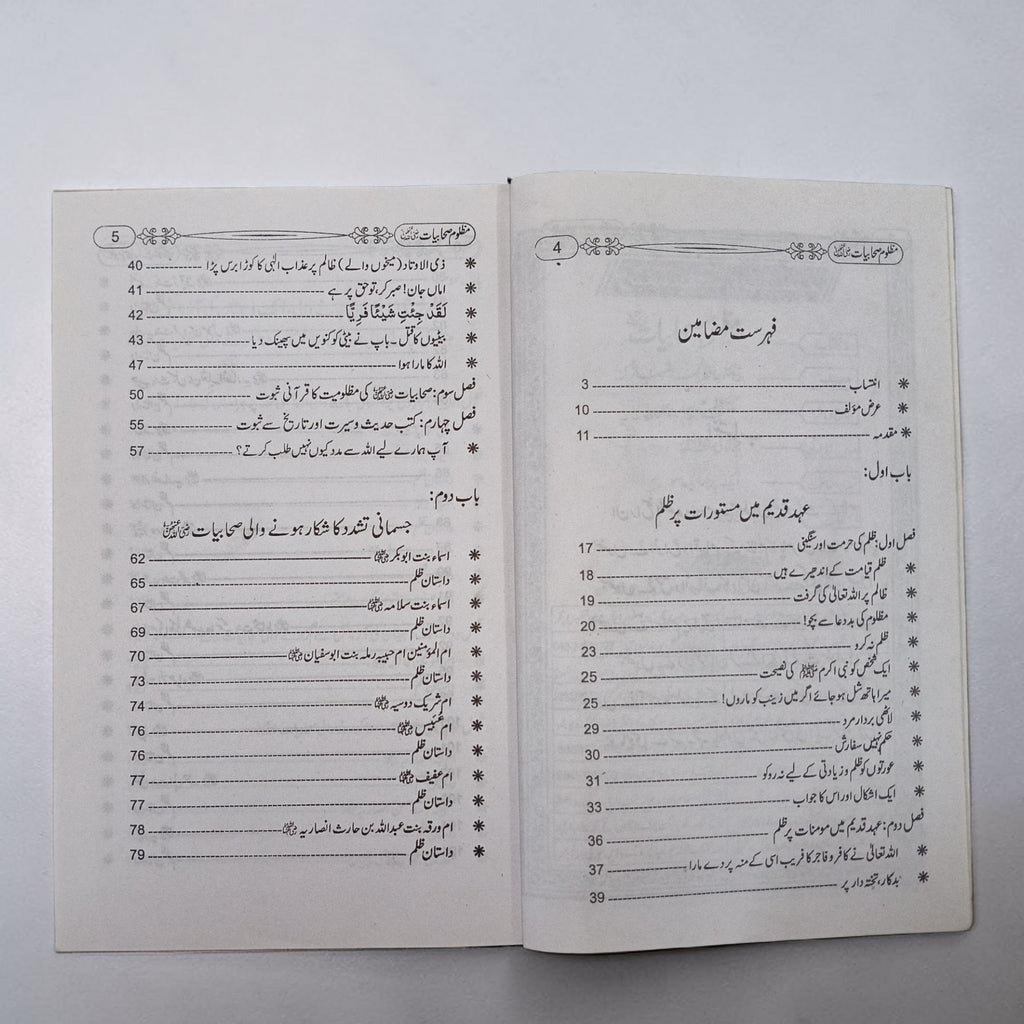 مظلوم صحابیات رضی اللہ عنہن 4
فہرست مضامین
❋ انتساب 3
❋ عرض مؤلف 10
❋ مقدمہ 11
باب اول:
عہد قدیم میں مستورات پر ظلم
فصل اول: ظلم کی حرمت اور سنگینی 17
❋ ظلم قیامت کے اندھیرے ہیں 18
❋ ظالم پر اللہ تعالیٰ کی گرفت 19
❋ مظلوم کی بددعا سے بچو! 20
❋ ظلم نہ کرو 23
❋ ایک شخص کو نبی اکرم ﷺ کی نصیحت 25
❋ میرا ہاتھ شل ہو جائے اگر میں زینب کو ماروں! 25
❋ لاٹھی بردار مرد 29
❋ حکم نہیں سفارش 30
❋ عورتوں کو ظلم و زیادتی کے لیے نہ روکو 31
❋ ایک اشکال اور اس کا جواب 33
فصل دوم: عہد قدیم میں مومنات پر ظلم 36
❋ اللہ تعالیٰ نے کافر و فاجر کا فریب اسی کے منہ پر دے مارا 37
❋ بدکار، تختہ دار پر 39
مظلوم صحابیات رضی اللہ عنہن 5
❋ ذی الاوتاد (میخوں والے) ظالم پر عذاب الٰہی کا کوڑا برس پڑا 40
❋ اماں جان! صبر کر، تو حق پر ہے 41
❋ لَقَدْ جِئْتِ شَيْئًا فَرِيًّا 42
❋ بیٹیوں کا قتل۔ باپ نے بیٹی کو کنویں میں پھینک دیا 43
❋ اللہ کا مارا ہوا 47
فصل سوم: صحابیات رضی اللہ عنہن کی مظلومیت کا قرآنی ثبوت 50
فصل چہارم: کتب حدیث و سیرت اور تاریخ سے ثبوت 55
❋ آپ ہمارے لیے اللہ سے مدد کیوں نہیں طلب کرتے؟ 57
باب دوم:
جسمانی تشدد کا شکار ہونے والی صحابیات رضی اللہ عنہن
❋ اسماء بنت ابوبکر رضی اللہ عنہا 62
❋ داستان ظلم 65
❋ اسماء بنت سلامہ رضی اللہ عنہا 67
❋ داستان ظلم 69
❋ ام المؤمنین ام حبیبہ رملہ بنت ابوسفیان رضی اللہ عنہا 70
❋ داستان ظلم 73
❋ ام شریک دوسیہ رضی اللہ عنہا 74
❋ ام عنبیس رضی اللہ عنہا 76
❋ داستان ظلم 76
❋ ام عفیف رضی اللہ عنہا 77
❋ داستان ظلم 77
❋ ام ورقہ بنت عبداللہ بن حارث انصاریہ رضی اللہ عنہا 78
❋ داستان ظلم 79